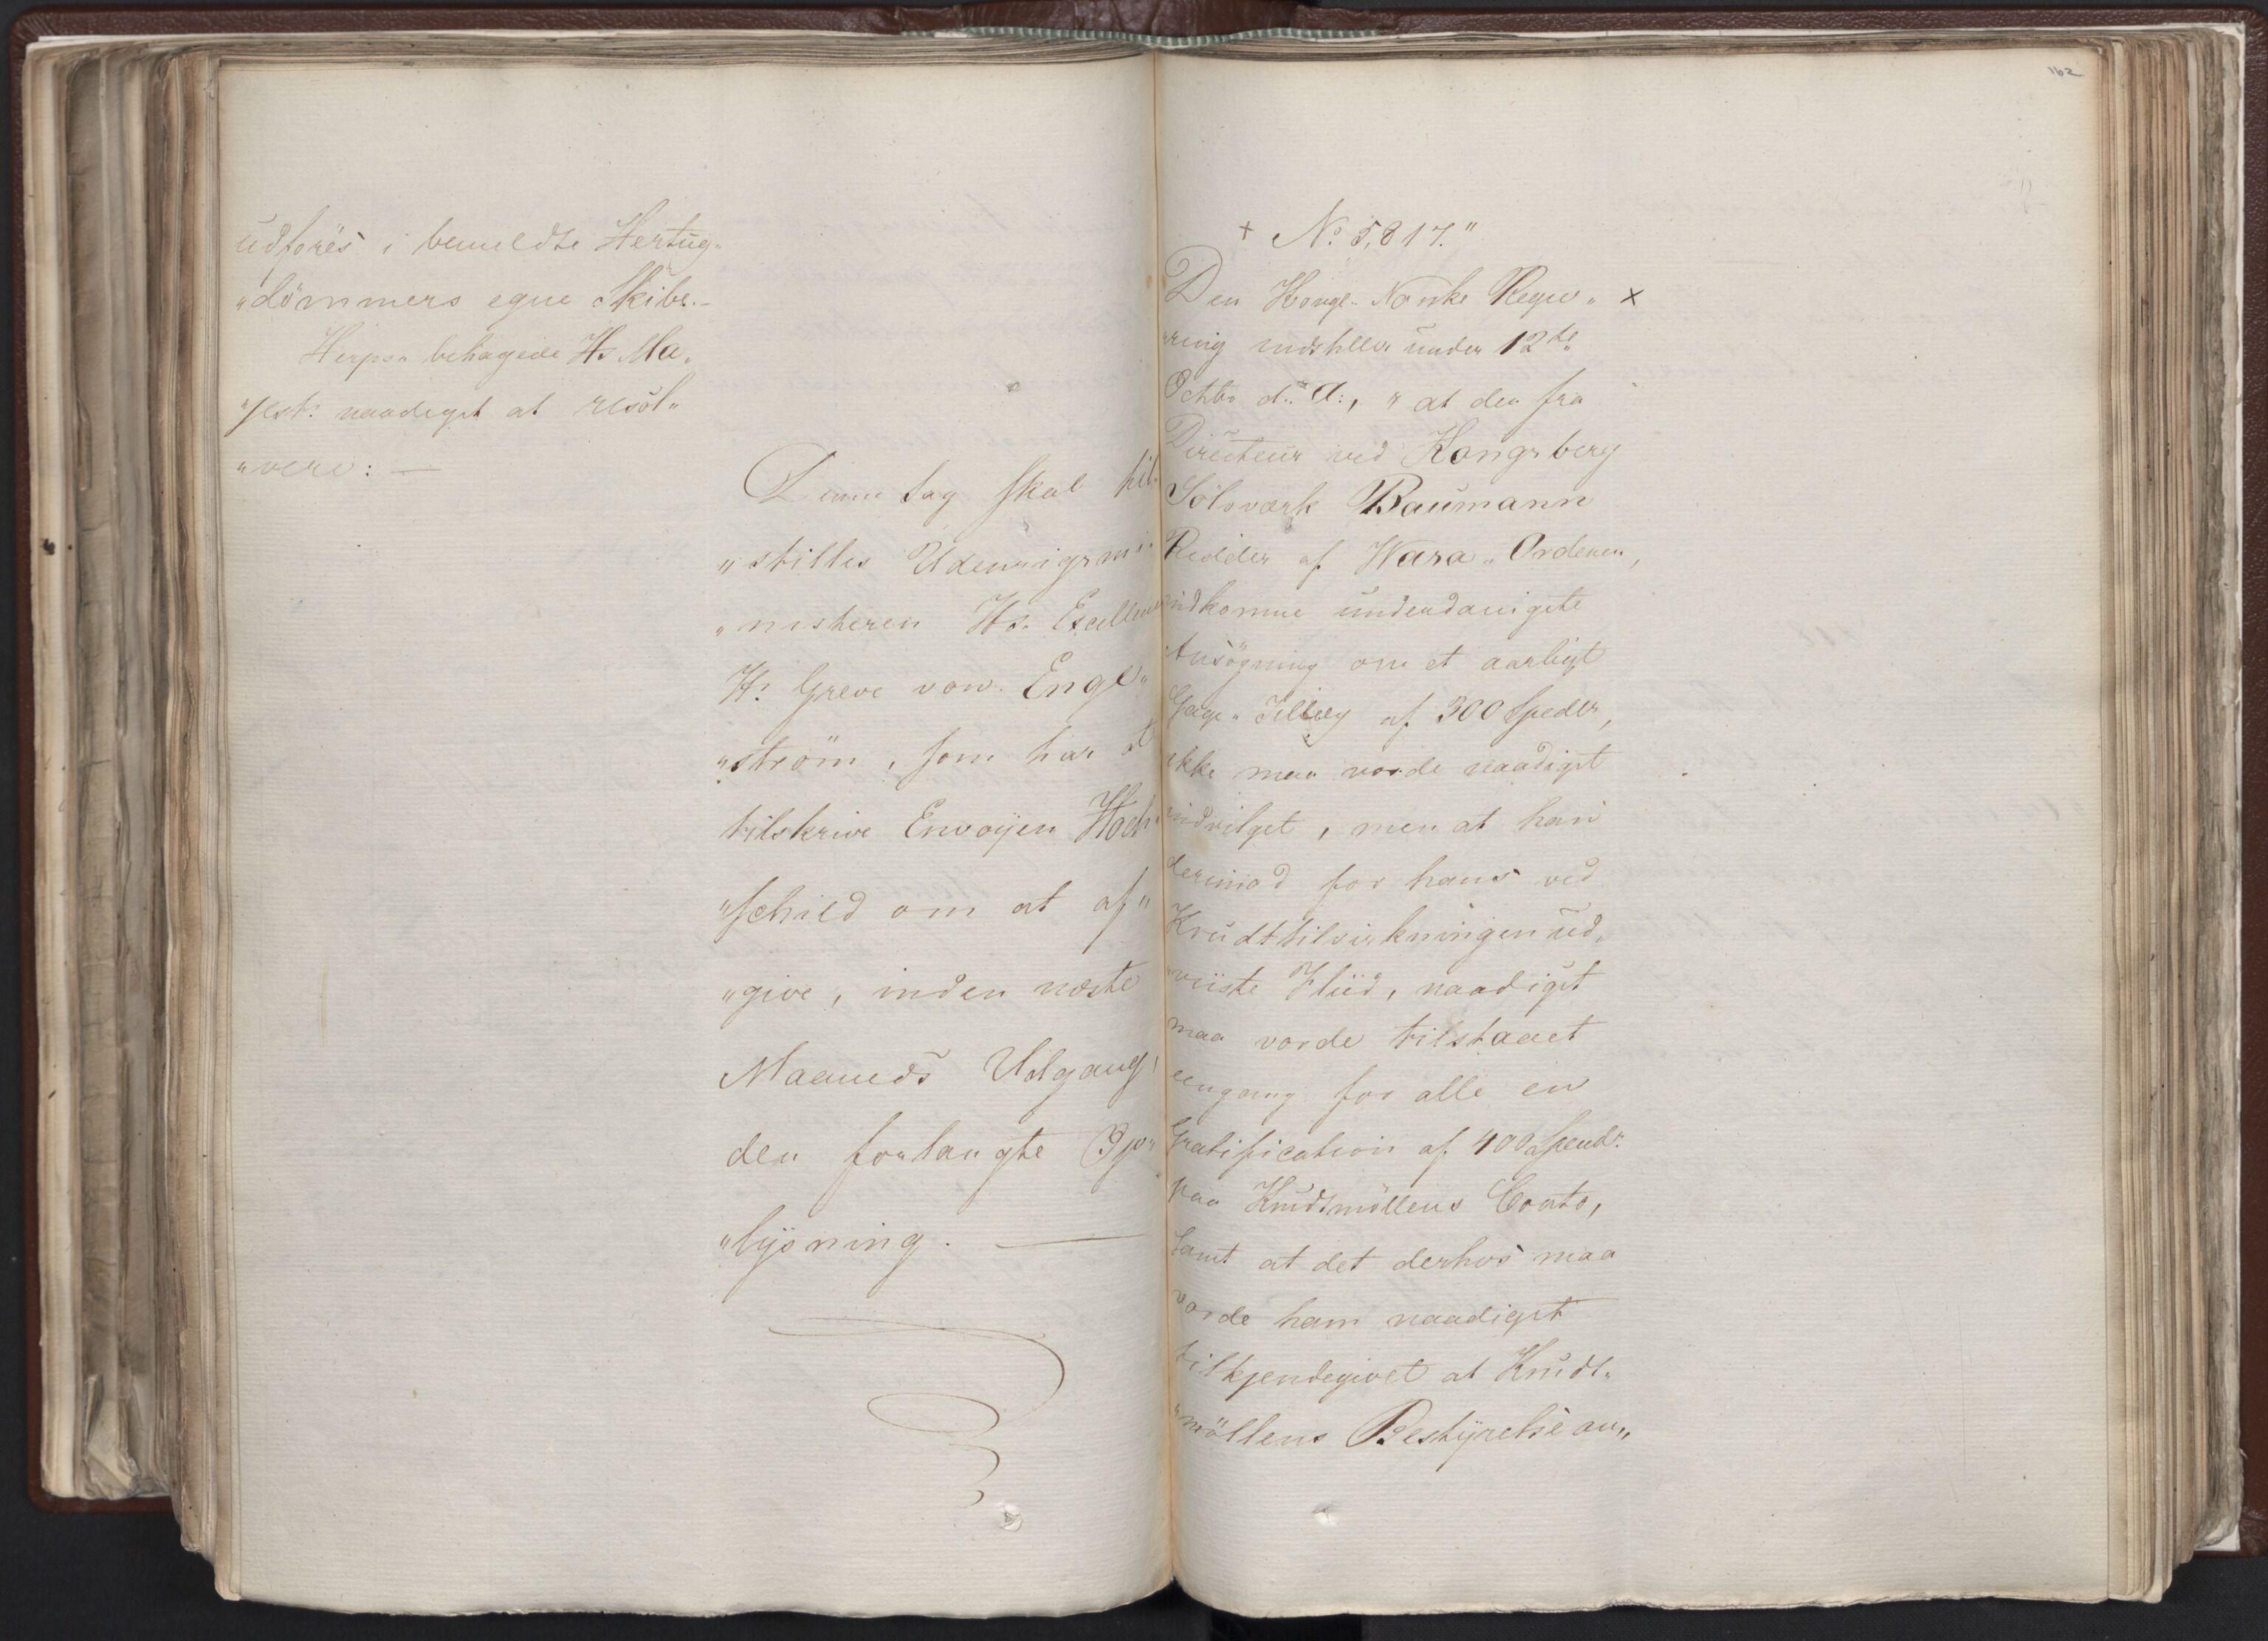 udföres i bemeldte Hertug„
„dömmers egne Skibe.–
Herpaa behagede Hs Ma„
„jest: naadigst at resol„
„vere: —
Denne Sag skal til„
„stilles Udenrigsmi„
„nisteren Hs. Excellence
Hr Greve von Enge„
„ström, som har at
tilskrive Envoyen Hoch„
„schild om at af„
„give, inden næste
Maaneds Udgang,
den forlangte Op„
„lysning. —
162
+ No 5,817."
Den Kongl. Norske Rege„ x
„ring indstiller under 12te
Octbr d. A:, „ at den fra
Directeur ved Kongsberg
Sölvværk Baumann
Ridder af Wasa„Ordenen,
indkomne underdanigste
Ansögning om et aarligt
Gage„Tillæg af 300 Spedlr,
ikke maa vorde naadigst
indvilget, men at han
derimod for hans ved
Krudttilvirkningen ud„
„viiste Fliid, naadigst
maa vorde tilstaaet
eengang for alle en
Gratification af 400 Specdr.
paa Krudtmöllens Conto,
samt at det derhos maa
vorde ham naadigst
tilkjendegivet at Krudt„
„möllens Bestyrelse an„